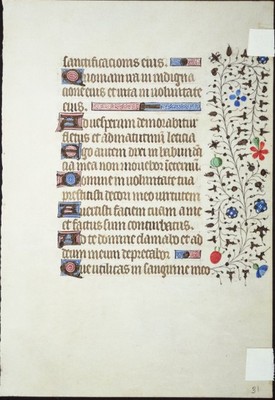 sanctificationis eius.
Quoniam ira in indigna
cione eius et vita in voluntate
eius.
Ad vesperum demorabitur
fletus et ad matutinum leticia
Ego autem dixi in habundan
cia mea non movebor ieternum.
Domine in voluntate tua
prestitisti decori meo virtutem
Avertisti faciem tuam a me
et factus sum conturbatus.
Ad te domine clamabo et ad
deum meum deprecabor.
Que utilitas in sanguine meo